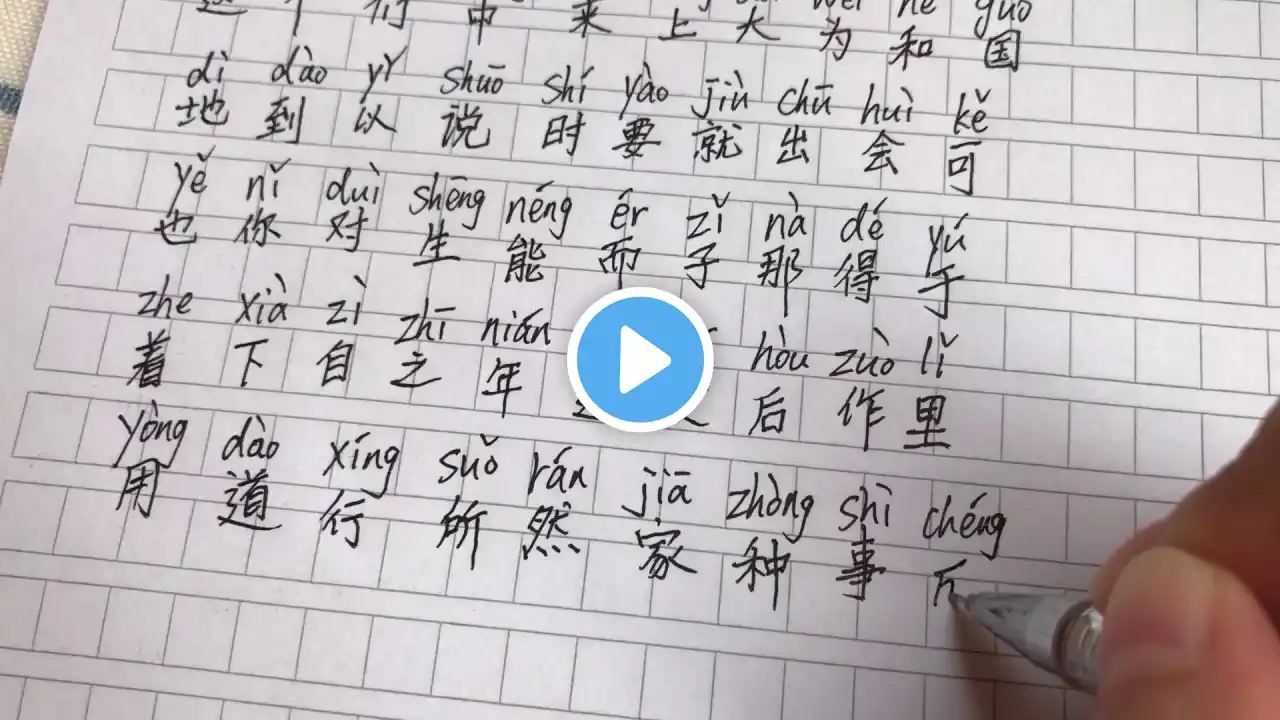 wèi hé guó
这 个 们 中 来 上 大 为 和 国
dì dào yǐ shuō shí yào jiù chū huì kě
地 到 以 说 时 要 就 出 会 可
yě nǐ duì shēng néng ér zǐ nà dé yú
也 你 对 生 能 而 子 那 得 于
zhe xià zì zhī nián hòu zuò lǐ
着 下 自 之 年 后 作 里
yòng dào xíng suǒ rán jiā zhòng shì chéng
用 道 行 所 然 家 种 事